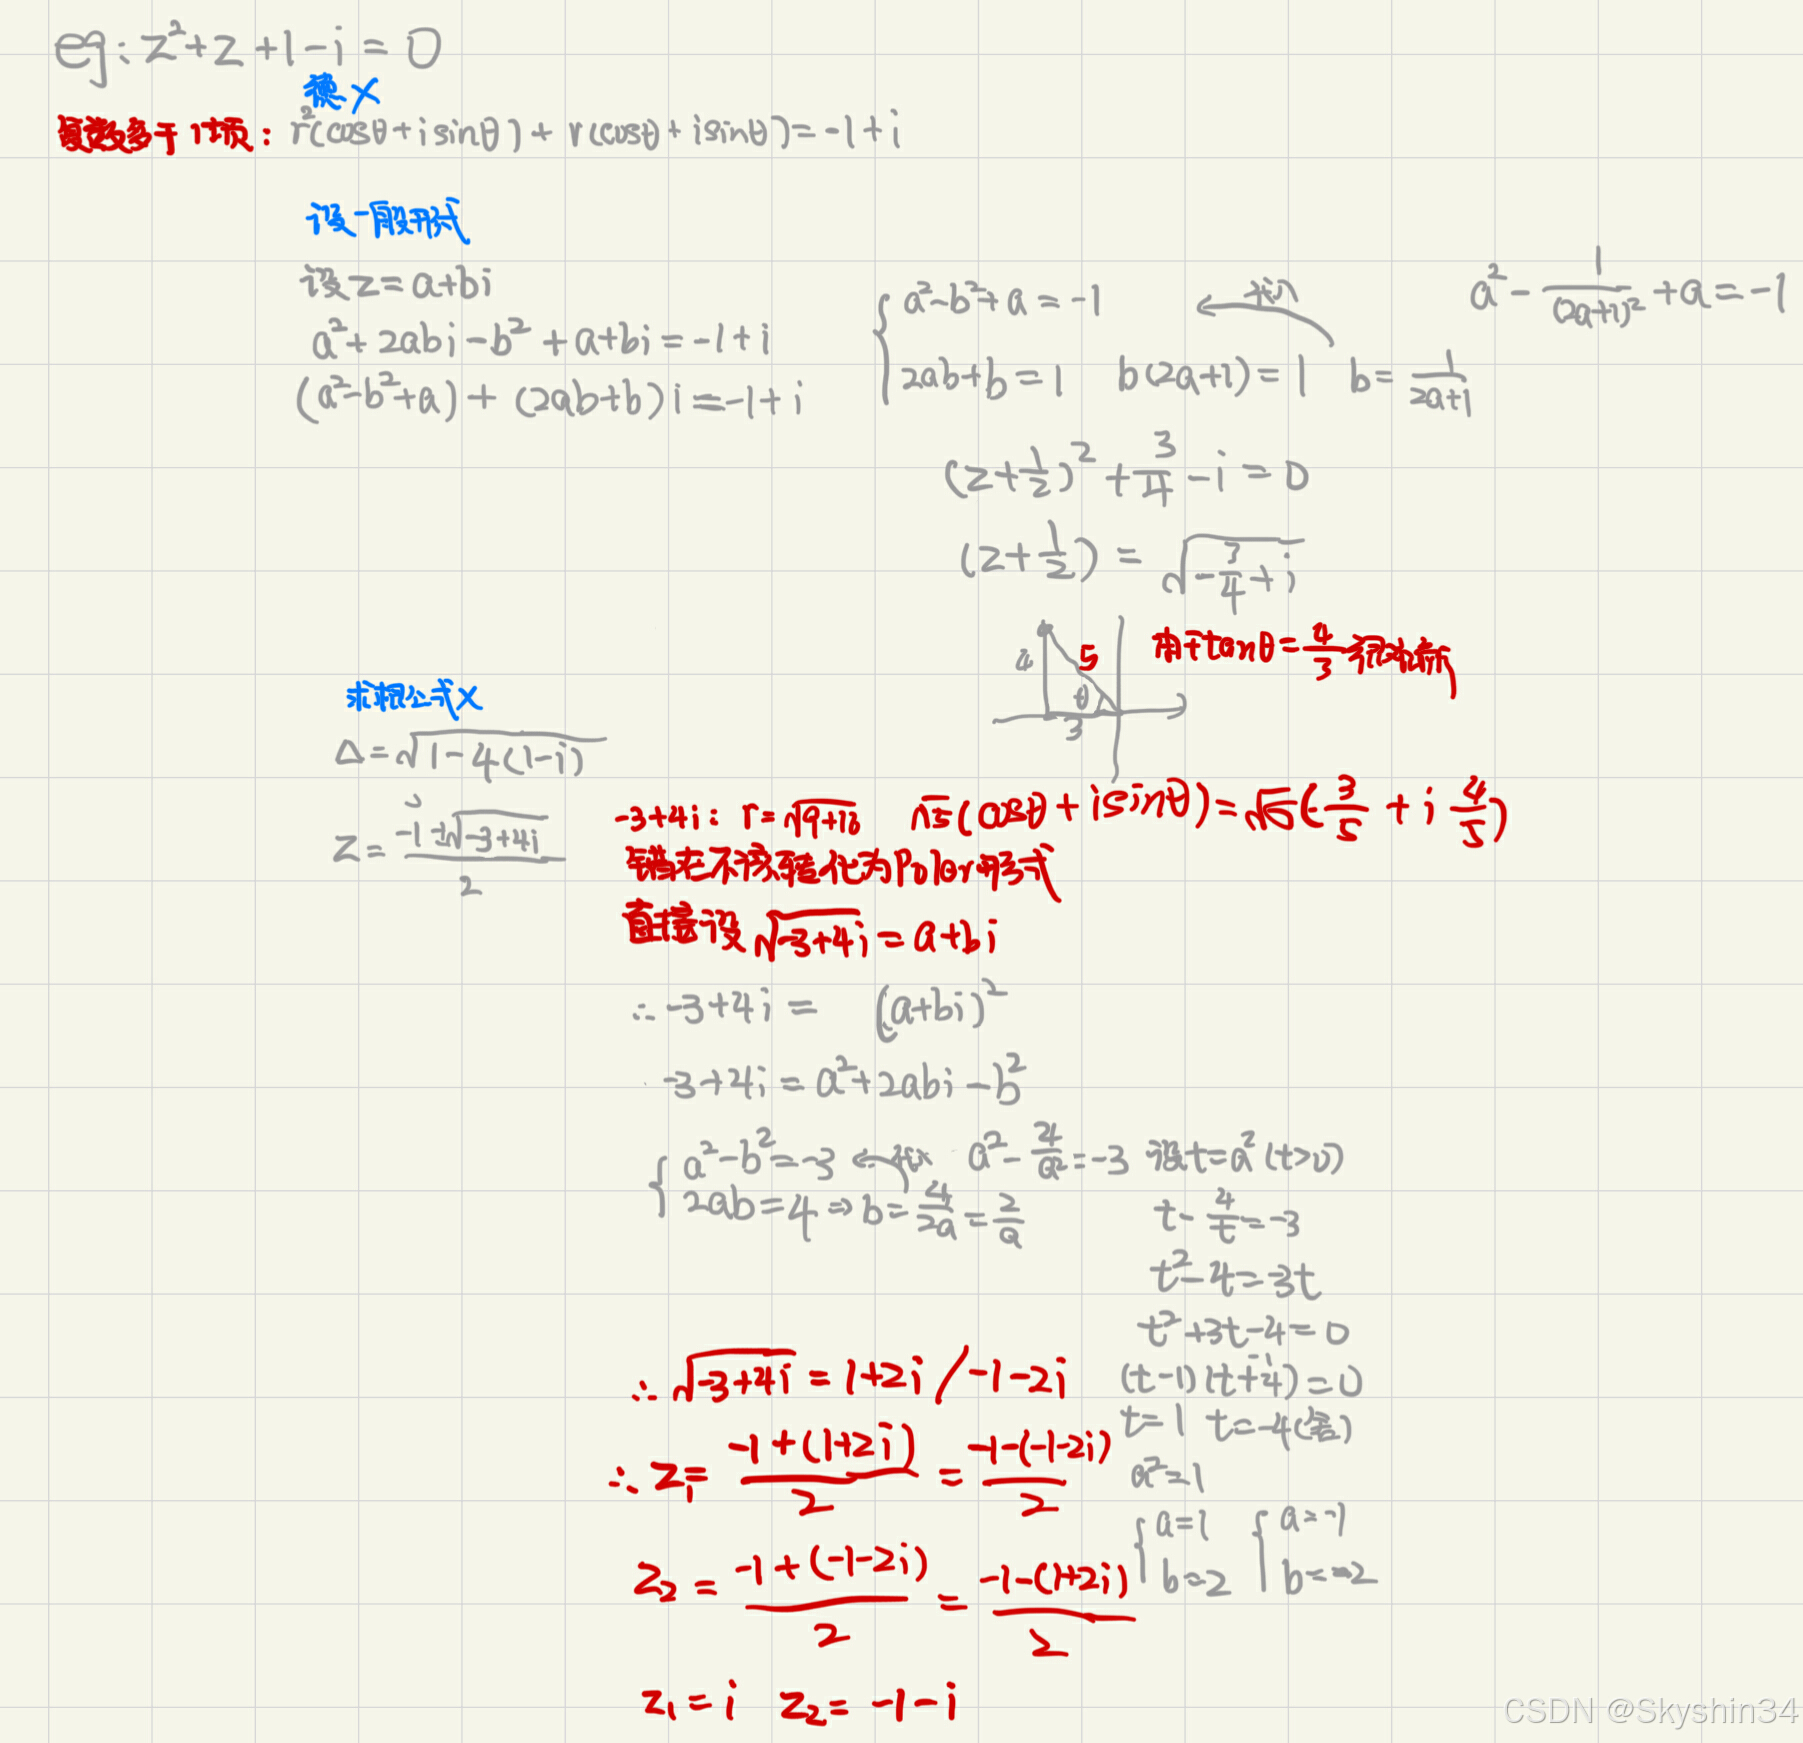 eg: z²+z+1-i=0
换 X
复数多于1项: r²(cosθ+isinθ)+r(cosθ+isinθ)=-1+i
设一般形式
设z=a+bi
a²+2abi-b²+a+bi=-1+i
(a²-b²+a)+(2ab+b)i=-1+i
a²-b²+a=-1 ← 代入 a²-1/(2a+1)²+a=-1
2ab+b=1 b(2a+1)=1 b=1/(2a+1)
(z+1/2)²+3/4-i=0
(z+1/2)=√(-3/4+i)
4 5 θ 3
由于tanθ=4/3
求根公式X
Δ=√(1-4(1-i))
z=(-1±√(-3+4i))/2
-3+4i: r=√(9+16) √5(cosθ+isinθ)=√5(-3/5+i4/5)
错在不该转化为Polar形式
直接设√(-3+4i)=a+bi
∴-3+4i= (a+bi)²
-3+4i=a²+2abi-b²
a²-b²=-3 ← 代入 a²-4/a²=-3 设t=a²(t>0)
2ab=4⇒b=4/2a=2/a
t-4/t=-3
t²-4=-3t
t²+3t-4=0
(t-1)(t+4)=0
t=1 t=-4(舍)
a²=1
a=1 a=-1
b=2 b=-2
∴√(-3+4i)=1+2i/-1-2i
∴z₁=(-1+(1+2i))/2=(-1-(-1-2i))/2
z₂=(-1+(-1-2i))/2=(-1-(1+2i))/2
z₁=i z₂=-1-i
CSDN @Skyshin34